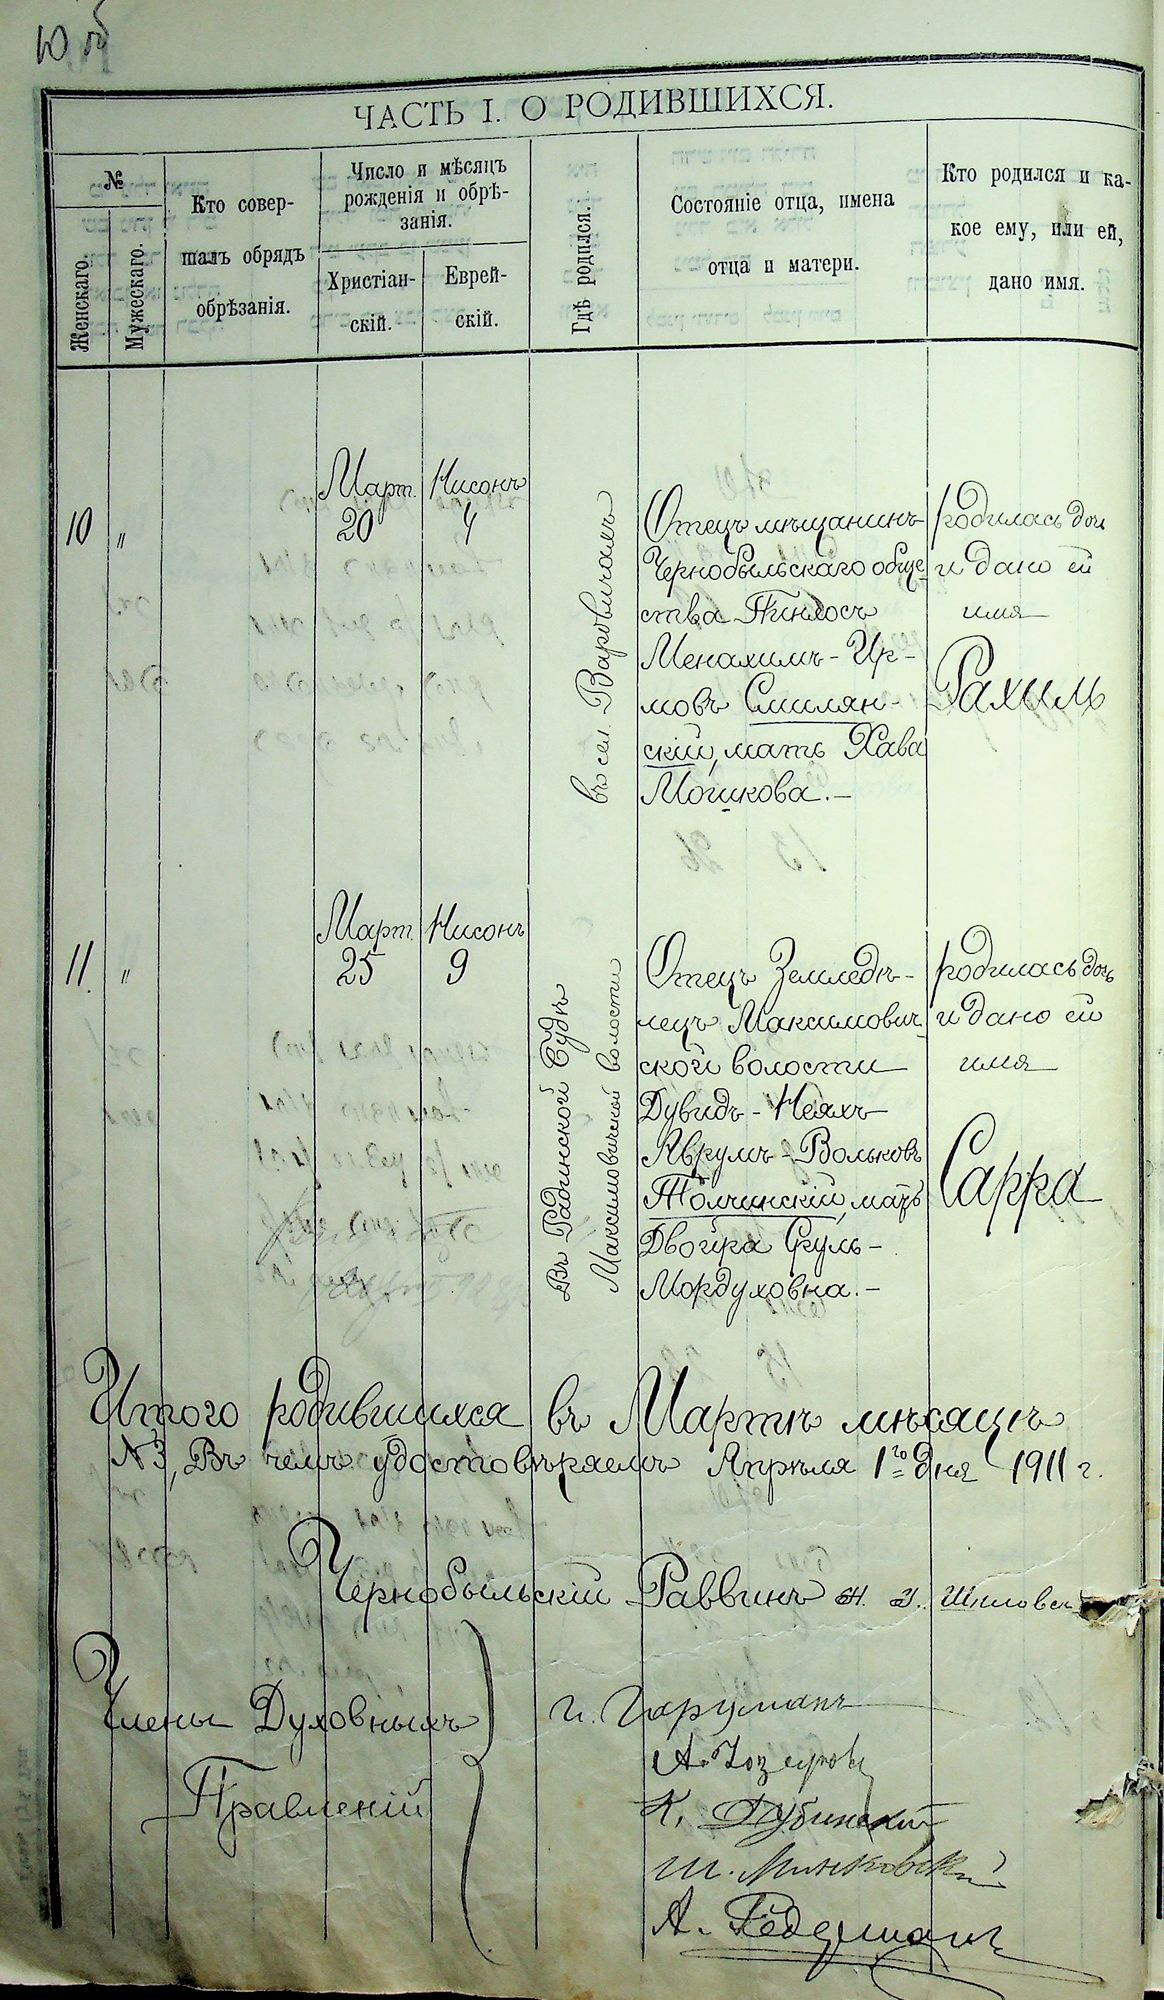 10 об
ЧАСТЬ I. О РОДИВШИХСЯ.
№
Женскаго.
Мужескаго.
Кто совер-
шалъ обрядъ
обрѣзанія.
Число и мѣсяцъ
рожденія и обрѣ-
занія.
Христіан-
скій.
Еврей-
скій.
Гдѣ родился.
Состояніе отца, имена
отца и матери.
Кто родился и ка-
кое ему, или ей,
дано имя.
10
"
Март.
20
Нисонъ
4
въ сел. Варовичахъ
Отецъ мѣщанинъ
Чернобыльскаго обще-
ства Пинхосъ
Менахимъ-Ир-
мовъ Смилян-
скій, мать Хава
Мошкова.-
родилась доч
и дано ей
имя
Рахиль
11.
"
Март.
25
Нисонъ
9
Въ Радинской Будѣ
Максимовичской волости
Отецъ Земледѣ-
лецъ Максимович-
ской волости
Дувидъ-Неяхъ
Аврумъ-Вольковъ
Толчинскій, мать
Двойра Фруль-
Мордуховна.-
родилась доч
и дано ей
имя
Сарра
Итого родившихся въ Мартѣ мѣсяцѣ
№3, Въ чемъ удостовѣряемъ Апрѣля 1го дня 1911 г.
Чернобыльскій Раввинъ
Члены Духовныхъ
Правленій
К. Дубинскій
Ш. Минковскій
А.